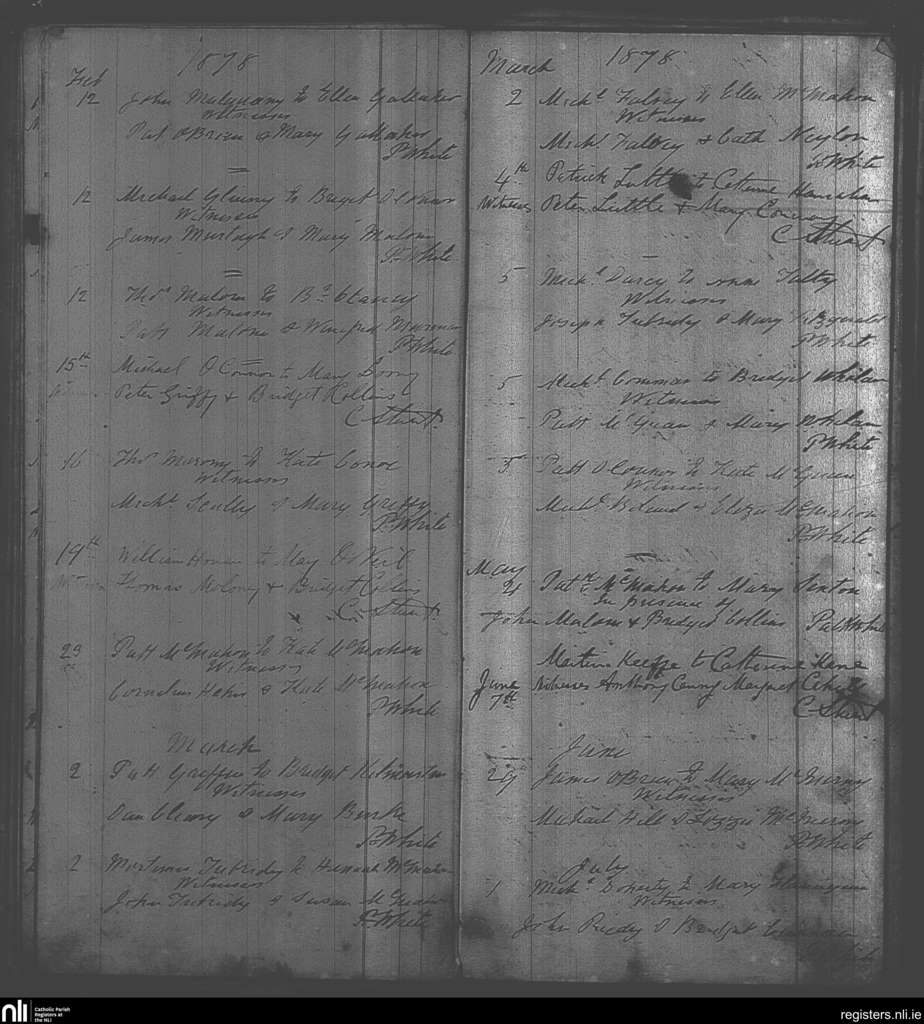 1878
Feb
12 John Mulqueany to Ellen Gallaher
Witnesses
Pat O'Brien & Mary Gallaher
P White
12 Michael to Bridget O'Connor
Witnesses
James Murtagh & Mary Malone
P. White
12 Thos Malone to Bt Clancy
Witnesses
Patt Malone & Winefred
P White
15th Michael O'Connor to Mary
Peter Griffy & Bridget Hollins
C Stuart
16 Thos Moroney to Kate Conor
Witnesses
Michl Scully & Mary Griffy
P. White
19th William to May O'Neil
Thomas Molony & Bridget Collins
C. Stuart
23 Patt McMahon to Kate McMahon
Witnesses
Cornelius Hehir & Kate McMahon
P White
March
2 Patt Griffin to Bridget
Witnesses
Dan Cleary & Mary Burke
P. White
2 Mortimer Tubridy to Hannah McMahon
Witnesses
John Tubridy & Susan
P. White
March 1878
2 Michl Falvey to Ellen McMahon
Witnesses
Michl Falvey & Cath Neylon
P White
4th Patrick Luttle to Catherine Hanrahan
Witnesses Peter Luttle & Mary Conway
C Stuart
5 Michl Darcy to Anne Talty
Witnesses
Joseph Tubridy & Mary Fitzgerald
P. White
5 Michl Commas to Bridget Whelan
Witnesses
Patt McGuan & Mary Whelan
P White
5 Patt O'Connor to Kate
Witnesses
Michl Boland & Eliza McMahon
P. White
May
21 Patk McMahon to Mary Sexton
In presence of
John Malone & Bridget Collins Patk White
Martin Keeffe to Catherine Kane
June 7th Witnesses Anthony Margaret
C Stuart
June
29 James O'Brien to Mary McInerny
Witnesses
Michael Hill & Lizzie McInerny
P. White
July
1 Michl Doherty to Mary
Witnesses
John Reedy & Bridget
nli
Catholic Parish
Registers at
the NLI
registers.nli.ie